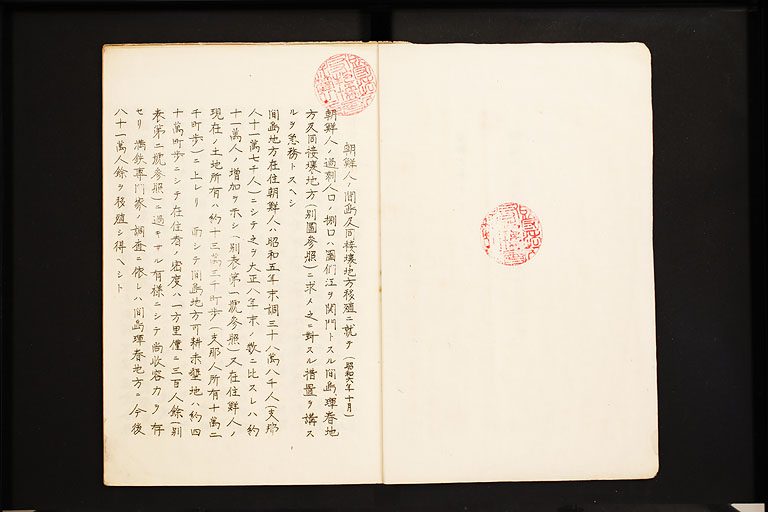 朝鮮人ノ間島及同接壤地方移殖ニ就テ(昭和六年十月)
朝鮮人ノ過剰人口ノ捌口ハ圖們江ヲ関門トスル間島琿春地
方及同接壤地方(別圖參照)ニ求メ之ニ對スル措置ヲ講ス
ルヲ急務トスヘシ
間島地方在住朝鮮人ハ昭和五年末調三十八萬八千人(支那
人十一萬七千人)ニシテ之ヲ大正八年末ノ数ニ比スレハ約
十一萬人ノ增加ヲ示シ(別表第一號參照)又在住鮮人ノ
現在ノ土地所有ハ約十三萬三千町歩(支那人所有十萬二
千町歩)ニ上レリ 而シテ間島地方可耕未墾地ハ約四
十萬町歩ニシテ在住者ノ密度ハ一方里僅ニ三百人餘(別
表第二號參照)ニ過キサル有様ニシテ尚收容力ヲ存
セリ 満鉄專門家ノ調査ニ依レハ間島琿春地方ニ今後
八十一萬人餘ヲ移殖シ得ヘシト